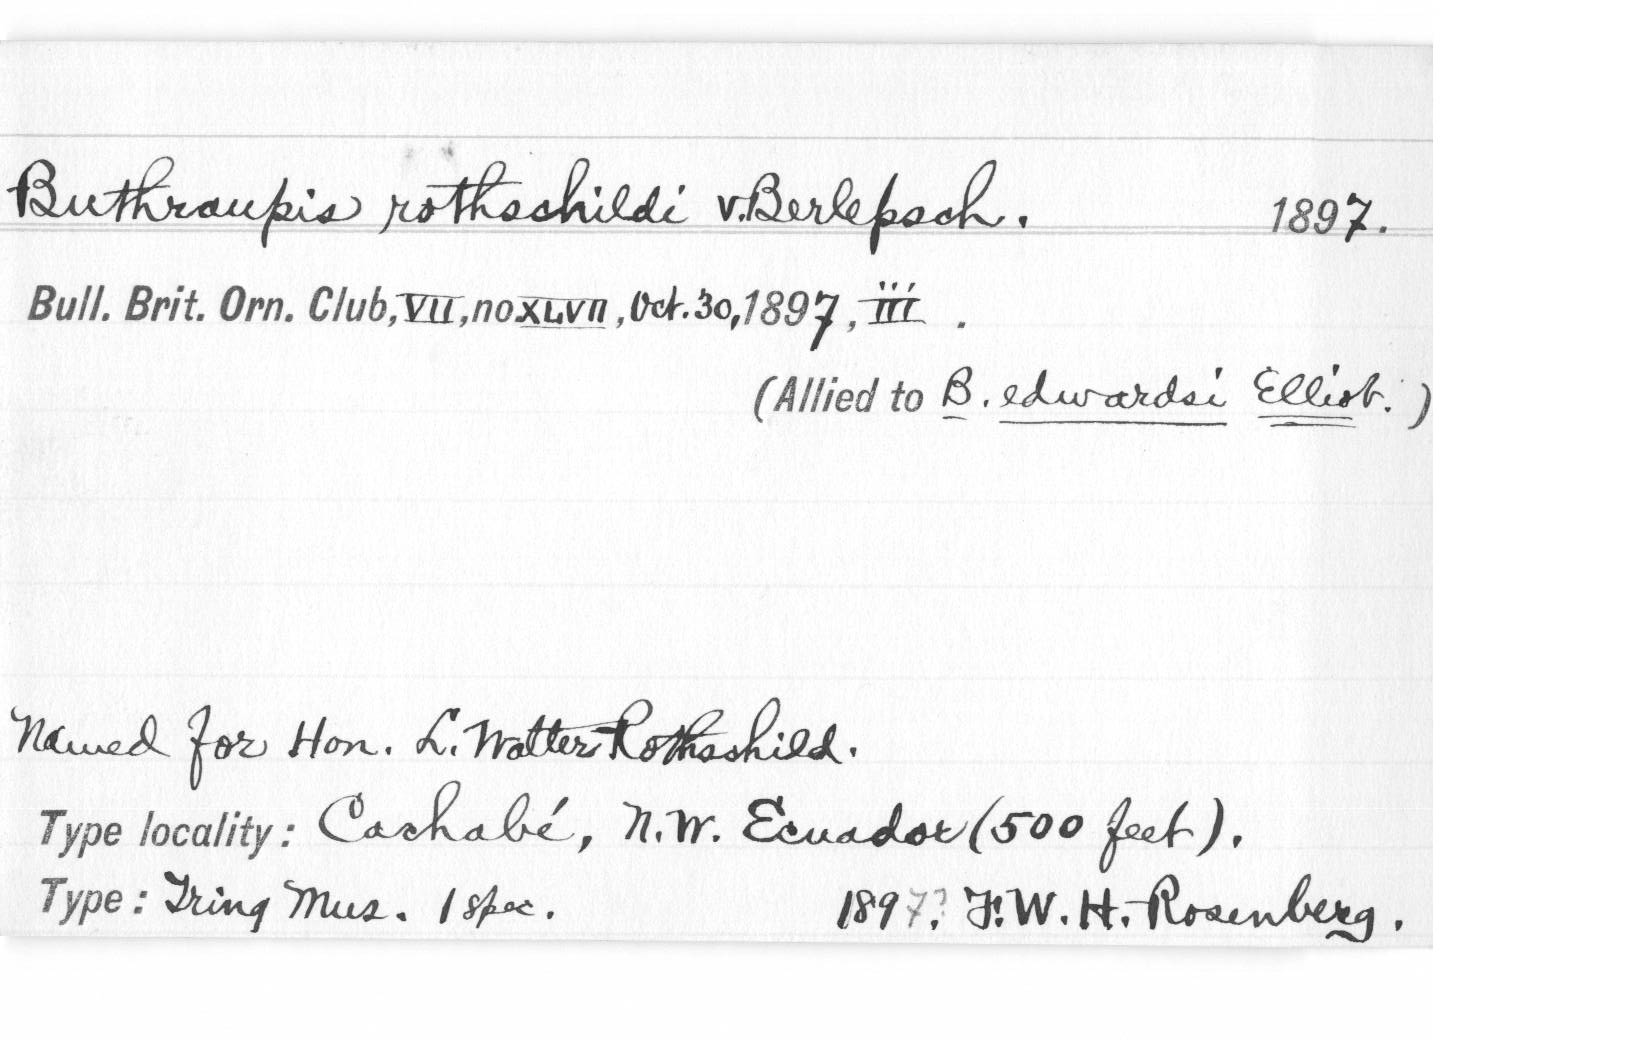 Buthraupis rothschildi v.Berlepsch. 1897.
Bull. Brit. Orn. Club, VII, no XLVII, Oct. 30, 1897, iii .
(Allied to B. edwardsi Elliot. )
Named for Hon. L. Walter Rothschild.
Type locality: Cachabé, N.W. Ecuador (500 feet).
Type: Tring Mus. 1 spec. 1897?. F.W.H. Rosenberg.